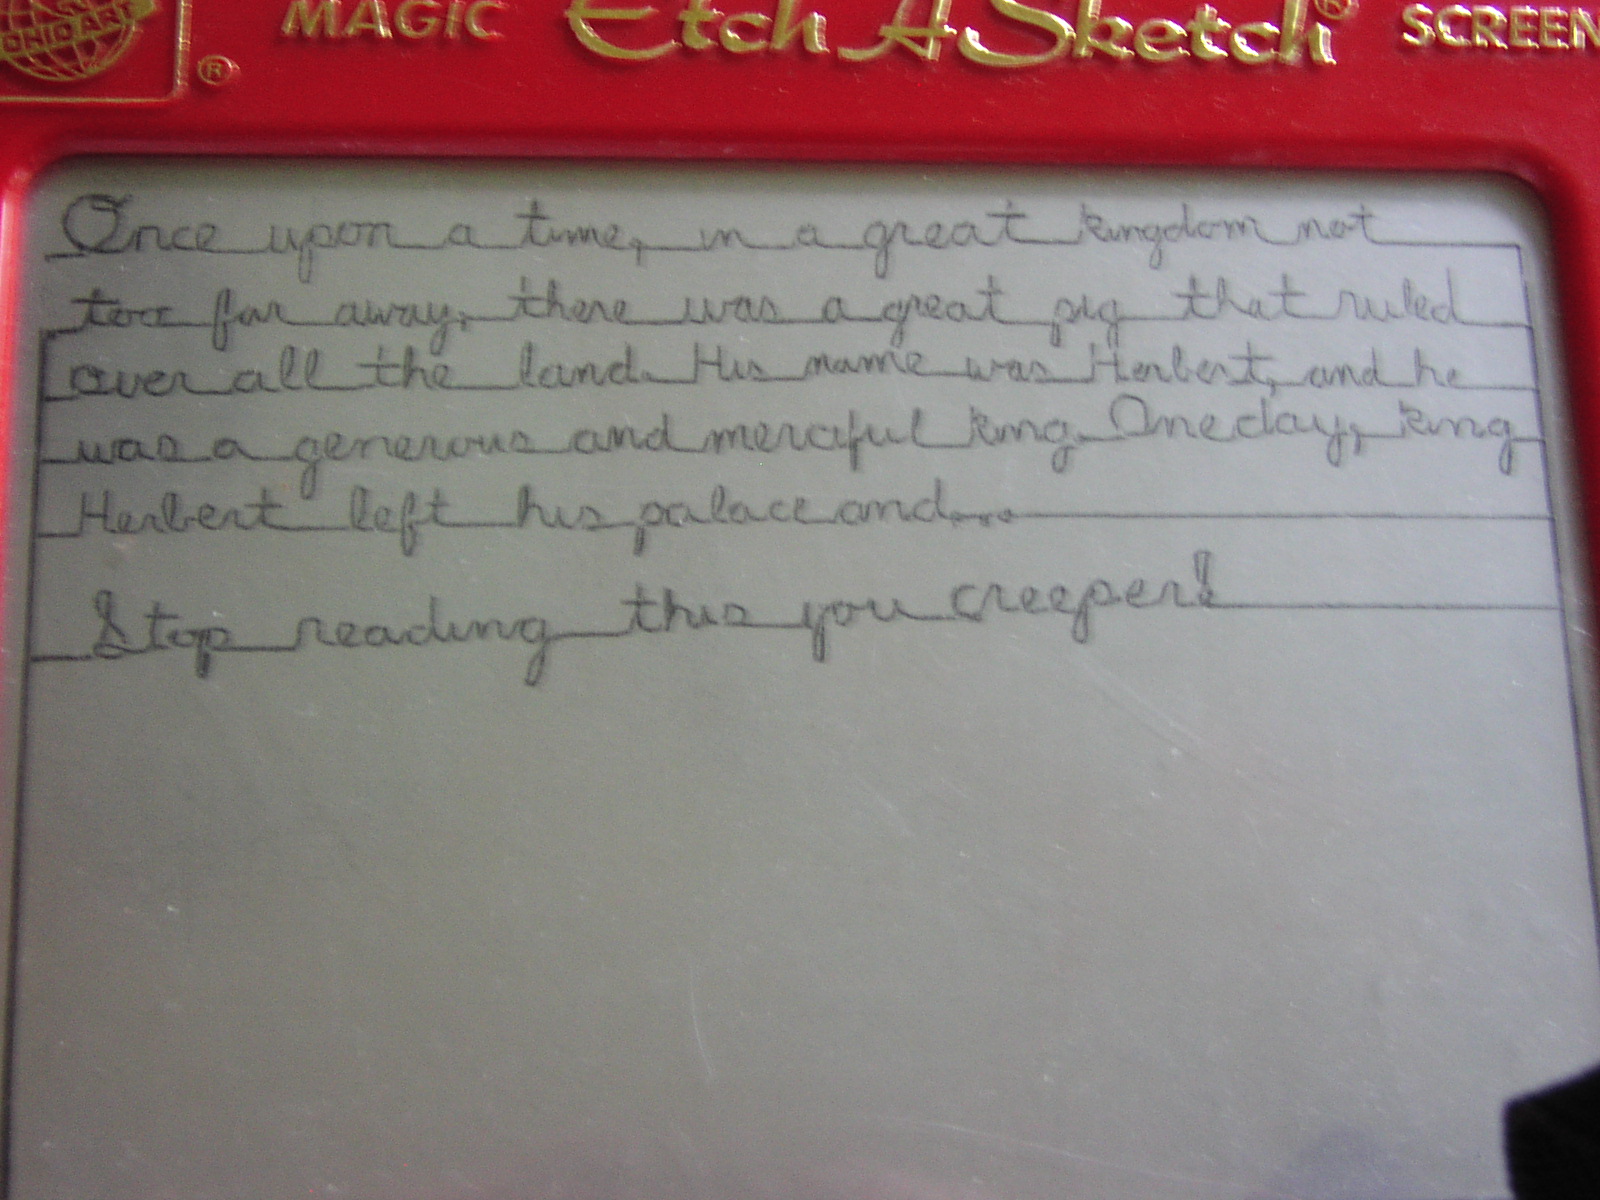 OHIO ART
®
MAGIC Etch A Sketch® SCREEN
Once upon a time, in a great kingdom not
too far away, there was a great pig that ruled
over all the land. His name was Herbert, and he
was a generous and merciful king. One day, king
Herbert left his palace and...
Stop reading this you creeper!